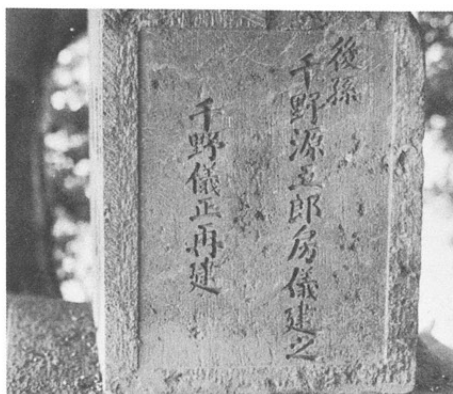 後孫
千野源五郎房儀建之
千野儀正再建